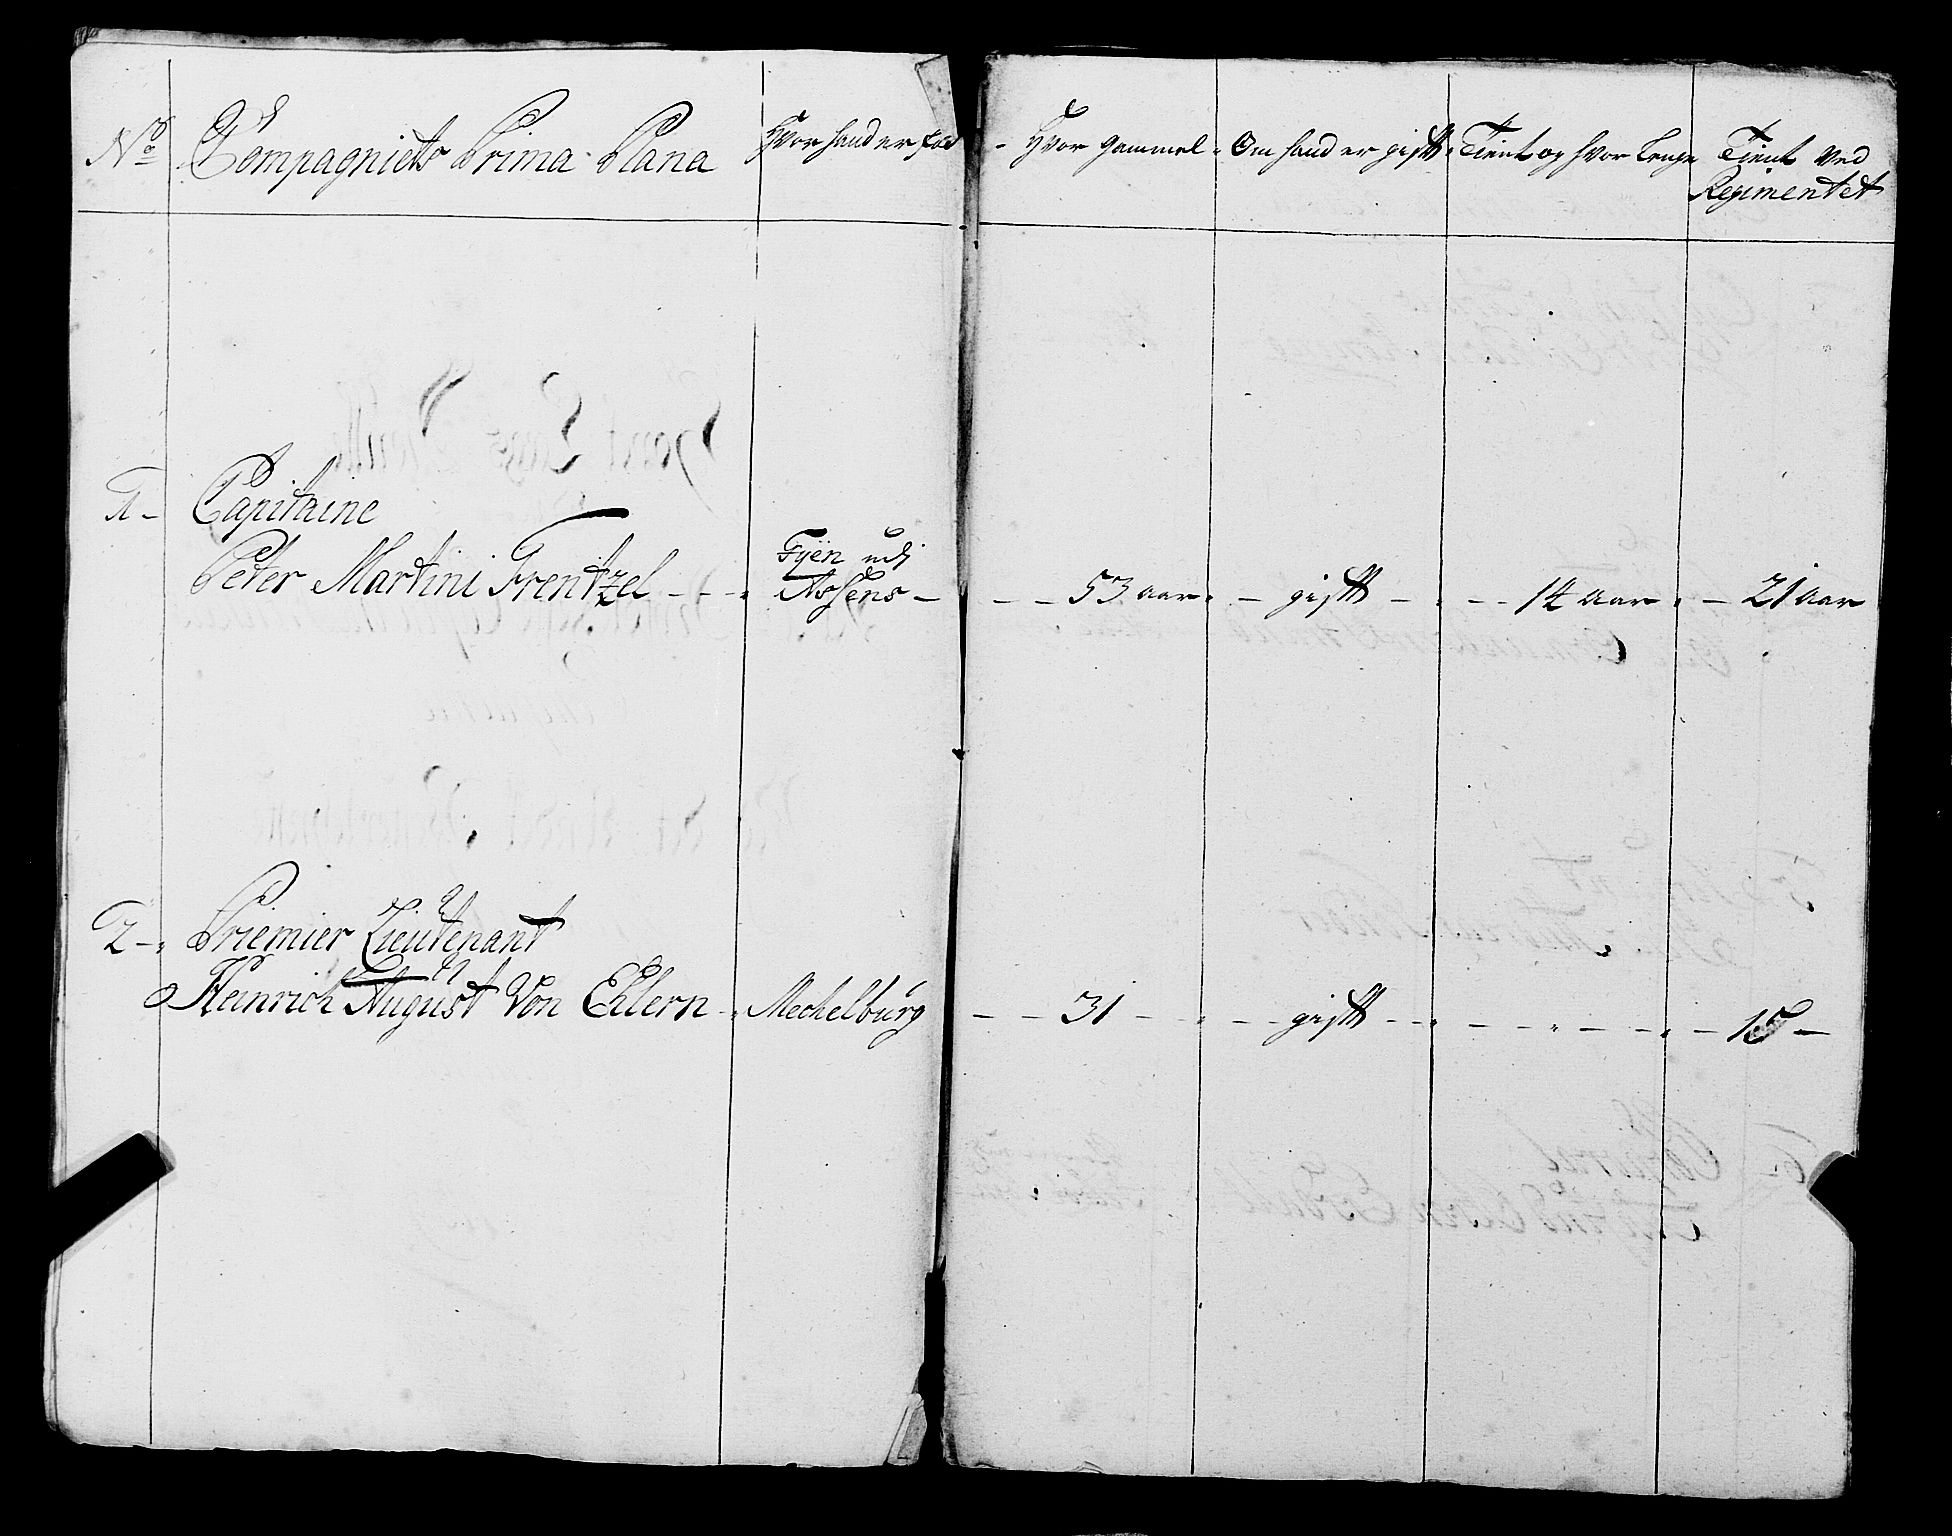 No
Compagniets Prima Plana
Hvor hand er fød
Hvor gammel
Om hand er gifft
Tient og hvor lenge
Tient ved
Regimentet
1
Capitaine
Peter Martini Frentzel
Fÿen udj
Assens
53 aar
gifft
14 aar
21 aar
2
Priemier Lieutenant
Heinrich August Von Ehlern
Mechelburg
31
gifft
15